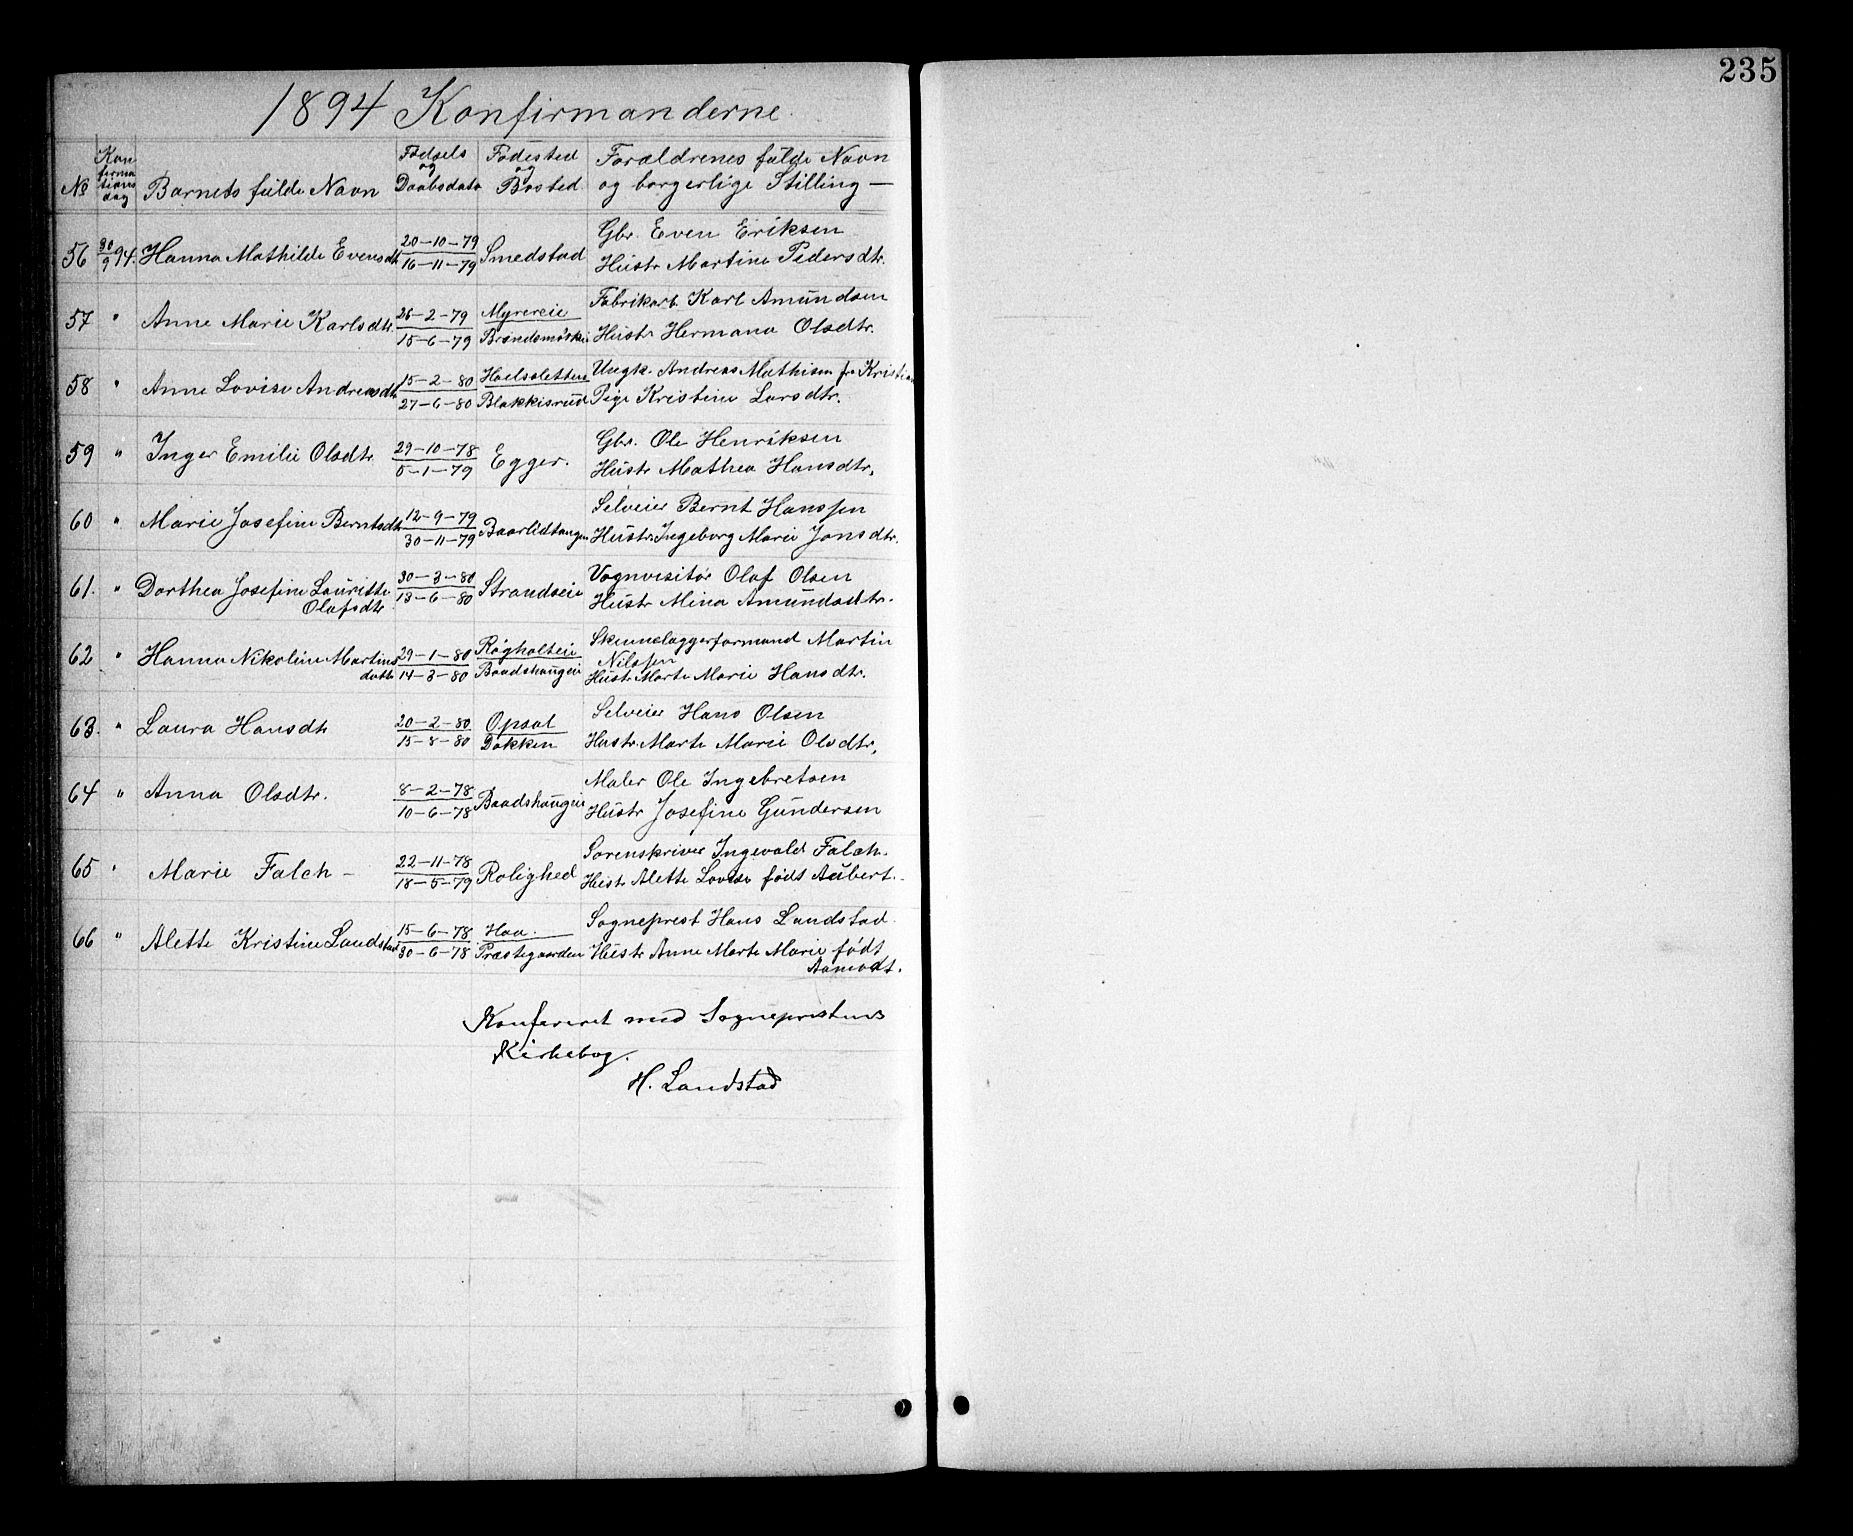 235
1894 Konfirmanderne
№ Konfirmationsdag Barnets fulde Navn Fødsels og Daabsdato Fødested og Bosted Forældrenes fulde Navn og borgerlige Stilling —
56 30/9 94. Hanna Mathilde Evensdtr 20-10-79 Smedstad Gbr. Even Eriksen
16-11-79 Hustr Martine Pedersdtr.
57 " Anne Marie Karlsdtr. 26-2-79 Myrereie Fabrikarb. Karl Amundsen
15-6-79 Hustr Hermana Olsdtr.
58 " Anne Lovise Andreasdtr 15-2-80 Ungk. Andreas Mathisen fr Kristian
27-6-80 Blakkisrud Pige Kristine Larsdtr.
59 " Inger Emilie Olsdtr. 29-10-78 Egger. Gbr. Ole Henriksen
5-1-79 Hustr Mathea Hansdtr.
60 " Marie Josefine Berntsdtr 12-9-79 Baarlidtangen Selveier Bernt Hanssen
30-11-79 Hustr. Ingeborg Marie Jonsdtr.
61. " Dorthea Josefine Lauritte 30-3-80 Strandseie Vognvisitør Olaf Olsen
Olafsdtr. 13-6-80 Hustr Mina Amundsdtr.
62 " Hanna Nikoline Martins 29-1-80 Røgholteie Skinnelæggerformand Martin
Nilssen
datter 14-3-80 Baadshaugeie Hustr Marte Marie Hansdtr.
63. " Laura Hansdtr 20-2-80 Opsal Selveier Hans Olsen
15-8-80 Dokken Hustr. Marte Marie Olsdtr.
64 " Anna Olsdtr. 8-2-78 Baadshaugeie Maler Ole Ingebretsen
10-6-78 Hustr Josefine Gundersen
65 " Marie Falch - 22-11-78 Rolighed Sorenskriver Ingevald Falch.
18-5-79 Hustr Alette Lovise født Aubert.
66 " Alette Kristine Landstad 15-6-78 Sogneprest Hans Landstad
30-6-78 Præstegaarden Hustr Anne Marte Marie født
Aamodt.
Konfereret med Sogneprestens
Kirkebog.
H. Landstad